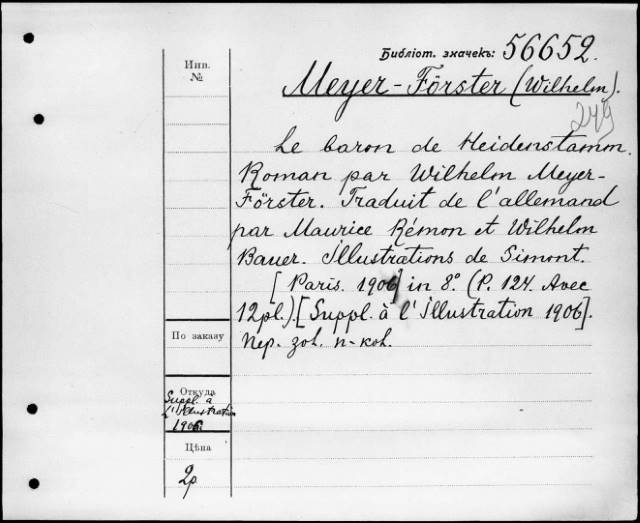 Библіот. значекъ: 56652.
Инв.
№
Meyer-Förster (Wilhelm).
249
Le baron de Heidenstamm.
Roman par Wilhelm Meyer-
Förster. Traduit de l'allemand
par Maurice Rémon et Wilhelm
Bauer. Illustrations de Simont.
[Paris. 1906] in 8°. (P. 124. Avec
12 pl.). [Suppl. à l'Illustration 1906].
Пер. зол. п-кож.
По заказу
Откуда
Suppl. à
l'Illustration
1906
Цѣна
2р